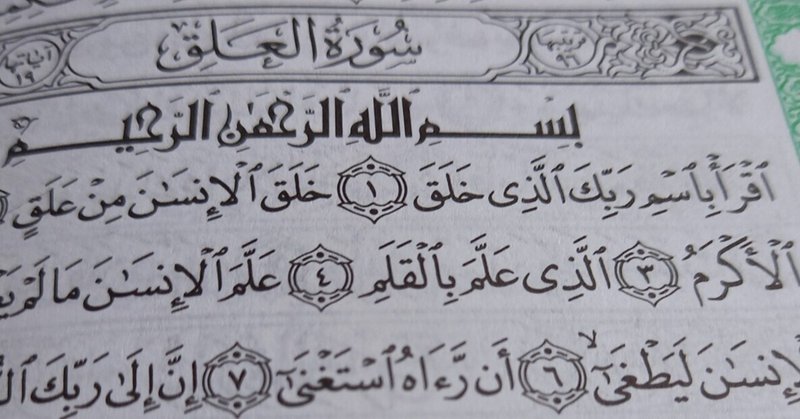 ترتيبها ٩٦ سُورَةُ الْعَلَقِ آياتها ١٩
بِسْمِ اللَّهِ الرَّحْمَٰنِ الرَّحِيمِ
ٱقْرَأْ بِٱسْمِ رَبِّكَ ٱلَّذِى خَلَقَ ١ خَلَقَ ٱلْإِنسَٰنَ مِنْ عَلَقٍ
ٱلْأَكْرَمُ ٣ ٱلَّذِى عَلَّمَ بِٱلْقَلَمِ ٤ عَلَّمَ ٱلْإِنسَٰنَ مَا لَمْ
لَيَطْغَىٰٓ ۙ ٦ أَن رَّءَاهُ ٱسْتَغْنَىٰٓ ٧ إِنَّ إِلَىٰ رَبِّكَ